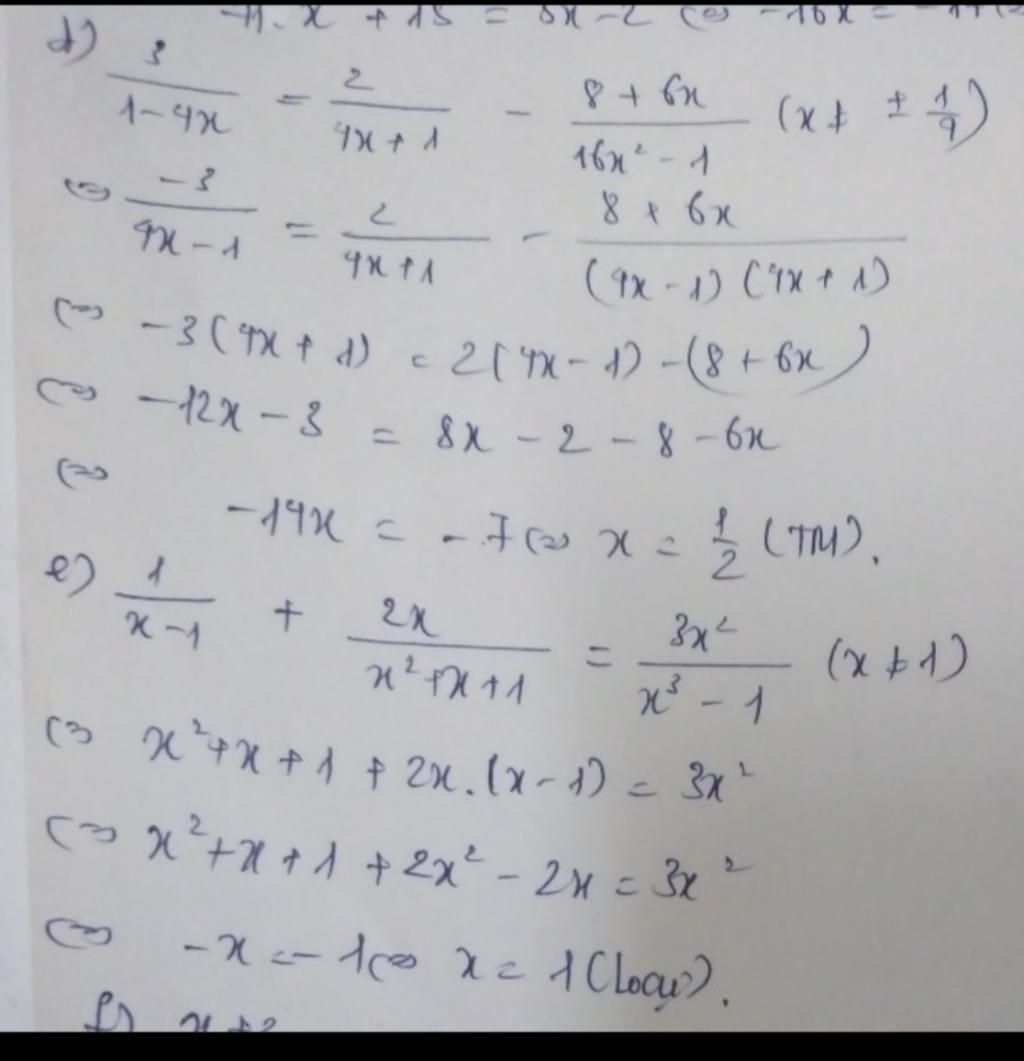 -11.x + 15 = 5x-2 ⇔ -16x = -17 ⇔
d) 3/(1-4x) = 2/(4x+1) - (8+6x)/(16x²-1) (x ≠ ± 1/4)
⇔ -3/(4x-1) = 2/(4x+1) - (8+6x)/((4x-1)(4x+1))
⇔ -3(4x+1) = 2(4x-1) -(8+6x)
⇔ -12x-3 = 8x-2-8-6x
⇔ -14x = -7 ⇔ x = 1/2 (TM).
e) 1/(x-1) + 2x/(x²+x+1) = 3x²/(x³-1) (x ≠ 1)
⇔ x²+x+1+2x.(x-1) = 3x²
⇔ x²+x+1+2x²-2x = 3x²
⇔ -x = -1 ⇔ x = 1 (Loại).
f) x+2